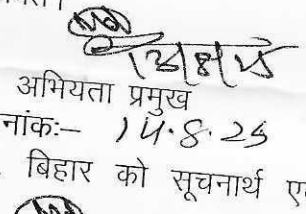 अभियता प्रमुख
नांकः– 14.8.25
बिहार को सूचनार्थ ए